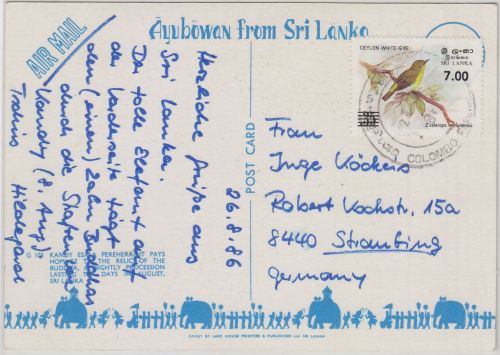 Ayubowan from Sri Lanka
AIR MAIL
26.8.86
Herzliche Grüße aus
Sri Lanka.
Der tolle Elefant auf
der Vorderseite trägt
den (einen) Zahn Buddhas
durch die Straßen
Kandy (8. Aug)
Hildegard
G 101 KANDY ESALA PEREHERA IT PAYS
HOMAGE TO THE RELIC OF THE
BUDDHA, A NIGHTLY PROCESSION
LASTING 10 DAYS IN AUGUST,
SRI LANKA
POST CARD
CEYLON WHITE-EYE
ශ්‍රී ලංකා
இலங்கை
SRI LANKA
7.00
35
Zosterops ceylonensis
COLOMBO
Frau
Inge Köckers
Robert Kochstr. 15a
8440 Straubing
Germany
OFFSET BY LAKE HOUSE PRINTERS & PUBLISHERS LTD SRI LANKA